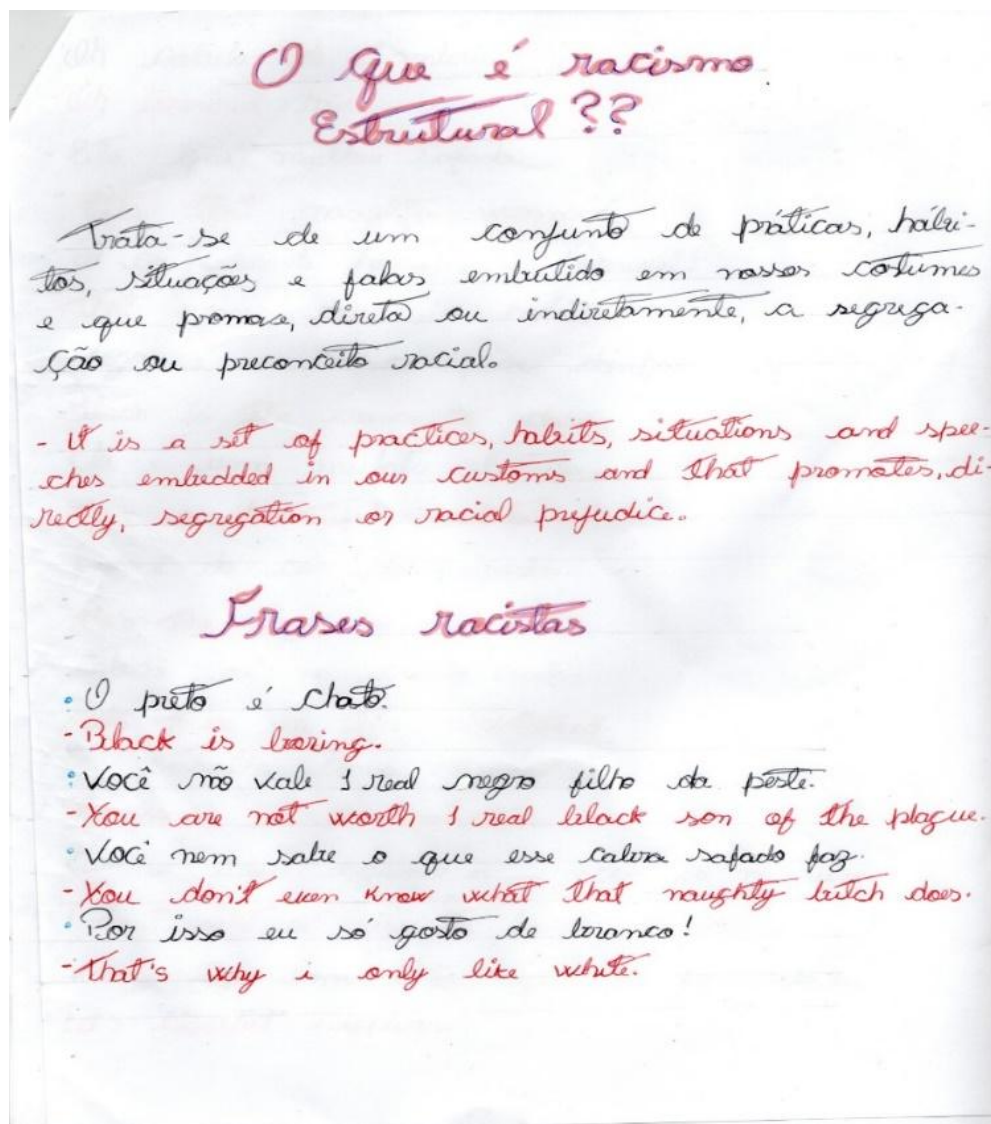 O que é racismo
Estrutural??
Trata-se de um conjunto de práticas, hábi-
tos, situações e falas embutido em nossos costumes
e que promove, direta ou indiretamente, a segrega-
ção ou preconceito racial.
- It is a set of practices, habits, situations and spee-
ches embedded in our customs and that promotes, di-
rectly, segregation or racial prejudice.
Frases racistas
• O preto é chato.
- Black is boring.
• Você não vale 1 real negro filho da peste.
- You are not worth 1 real black son of the plague.
• Você nem sabe o que esse safado faz.
- You don't even know what that naughty bitch does.
• Por isso eu só gosto de branco!
- That's why i only like white.